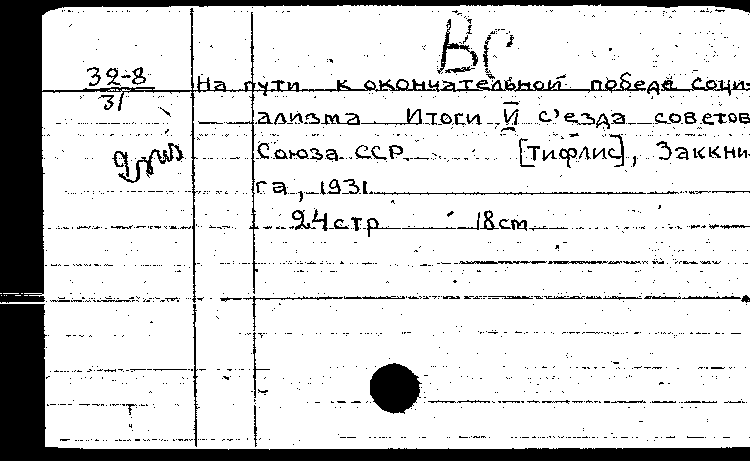 ВС
32-8
31
На пути к окончательной победе соци-
ализма Итоги VI с'езда советов
Союза ССР [Тифлис], Заккни
га, 1931
24 стр 18 cm